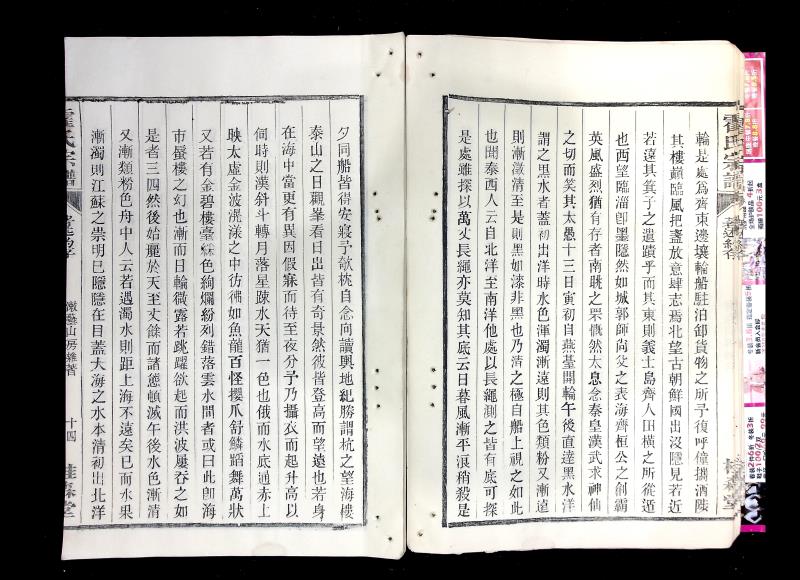 輪是處爲齊東邊壤輪船駐泊卸貨物之所予復呼僮攜酒陟
其樓巔臨風把盞放意肆志焉北望古朝鮮國出沒隱見若近
若遠其箕子之遺蹟乎而其東則義士島齊人田橫之所從遁
也西望臨淄卽墨隱然如城郭師尚父之表海齊桓公之創霸
英風盛烈猶有存者南眺之罘慨然太息念秦皇漢武求神仙
之切而笑其太愚十三日寅初自燕臺開輪午後直達黑水洋
謂之黑水者蓋初出洋時水色渾濁漸遠則其色類粉又漸遠
則漸澂清至是則黑如漆非黑也乃清之極自船上視之如此
也聞泰西人云自北洋至南洋他處以長繩測之皆有底可探
是處雖探以萬丈長繩亦莫知其底云日暮風漸平浪稍殺是
夕同船皆得安寢予欹枕自念向讀輿地紀勝謂杭之望海樓
泰山之日觀峯看日出皆有奇景然彼皆登高而望遠也若身
在海中當更有異因假寐而待至夜分予乃攝衣而起升高以
伺時則漢斜斗轉月落星疎水天猶一色也俄而水底通赤上
映太虛金波滉漾之中彷彿如魚龍百怪攫爪舒鱗蹈舞萬狀
又若有金碧樓臺絢爛紛列錯落雲水間者或曰此卽海
市蜃樓之幻也漸而日輪微露若跳躍欲起而洪波屢吞之如
是者三四然後始麗於天至丈餘而諸態頓滅午後水色漸清
又漸類粉色舟中人云若遇濁水則距上海不遠矣已而水果
漸濁則江蘇之崇明已隱隱在目蓋大海之水本清初出北洋
霍氏宗譜
澂懸山房雜著
十四